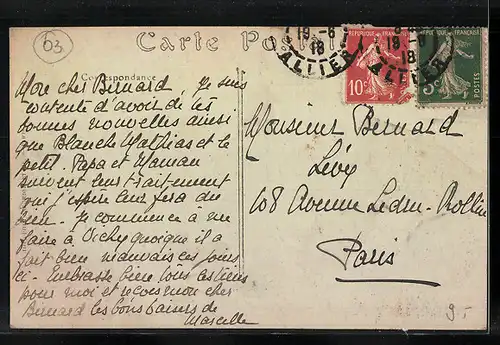 03
Carte Postale
Correspondance
19-6
18
ALLIER
19-6
18
ALLIER
REPUBLIQUE FRANÇAISE
10c
REPUBLIQUE FRANÇAISE
5c
Mon cher Bernard, Je suis
contente d'avoir de tes
bonnes nouvelles ainsi
que Blanche Mathias et le
petit. Papa et Maman
suivent leur traitement
qui j'espère leur fera du
bien. Je commence à me
faire à Vichy quoique il a
fait bien mauvais ces jours
ci. Embrasse bien tous les tiens
pour moi et reçois mon cher
Bernard les bons baisers de
Marcelle
Monsieur Bernard
Lévy
108 Avenue Ledru-Rollin
Paris
9-